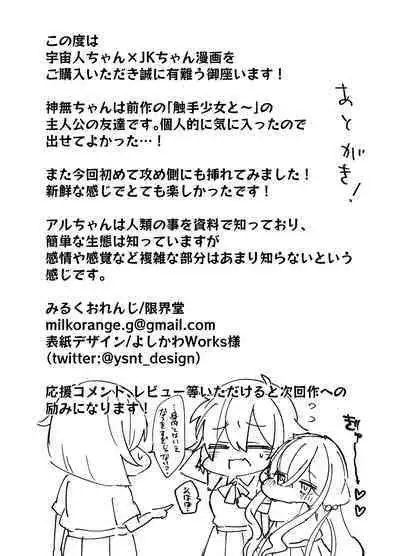 あとがき!
この度は
宇宙人ちゃん×JKちゃん漫画を
ご購入いただき誠に有難う御座います!
神無ちゃんは前作の「触手少女と~」の
主人公の友達です。個人的に気に入ったので
出せてよかった…!
また今回初めて攻め側にも挿れてみました!
新鮮な感じでとても楽しかったです!
アルちゃんは人類の事を資料で知っており、
簡単な生態は知っていますが
感情や感覚など複雑な部分はあまり知らないという
感じです。
みるくおれんじ/限界堂
milkorange.g@gmail.com
表紙デザイン/よしかわWorks様
(twitter:@ysnt_design)
応援コメント、レビュー等いただけると次回作への
励みになります!
ぎゅー